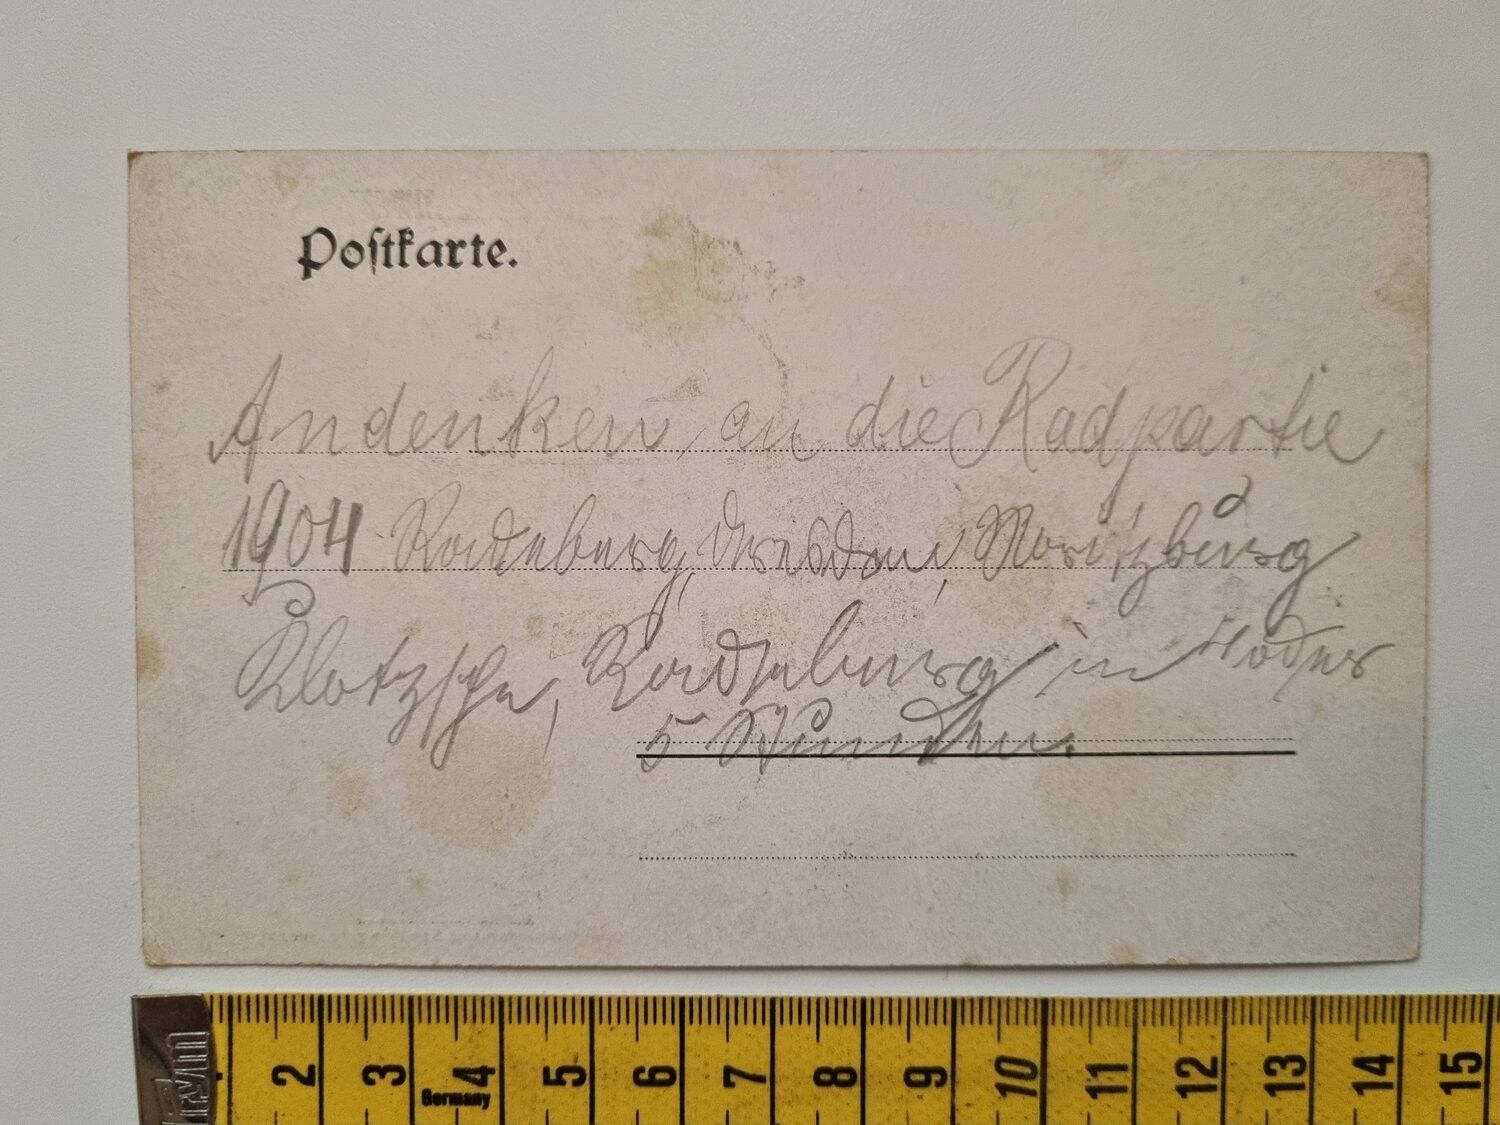 Postkarte.
Andenken an die Radpartie
1904 Radeberg, Dresden, Moritzburg
Klotzsche, Radeberg in 4 oder
5 Stunden.
2 3 4 5 6 7 8 9 10 11 12 13 14 15
Germany